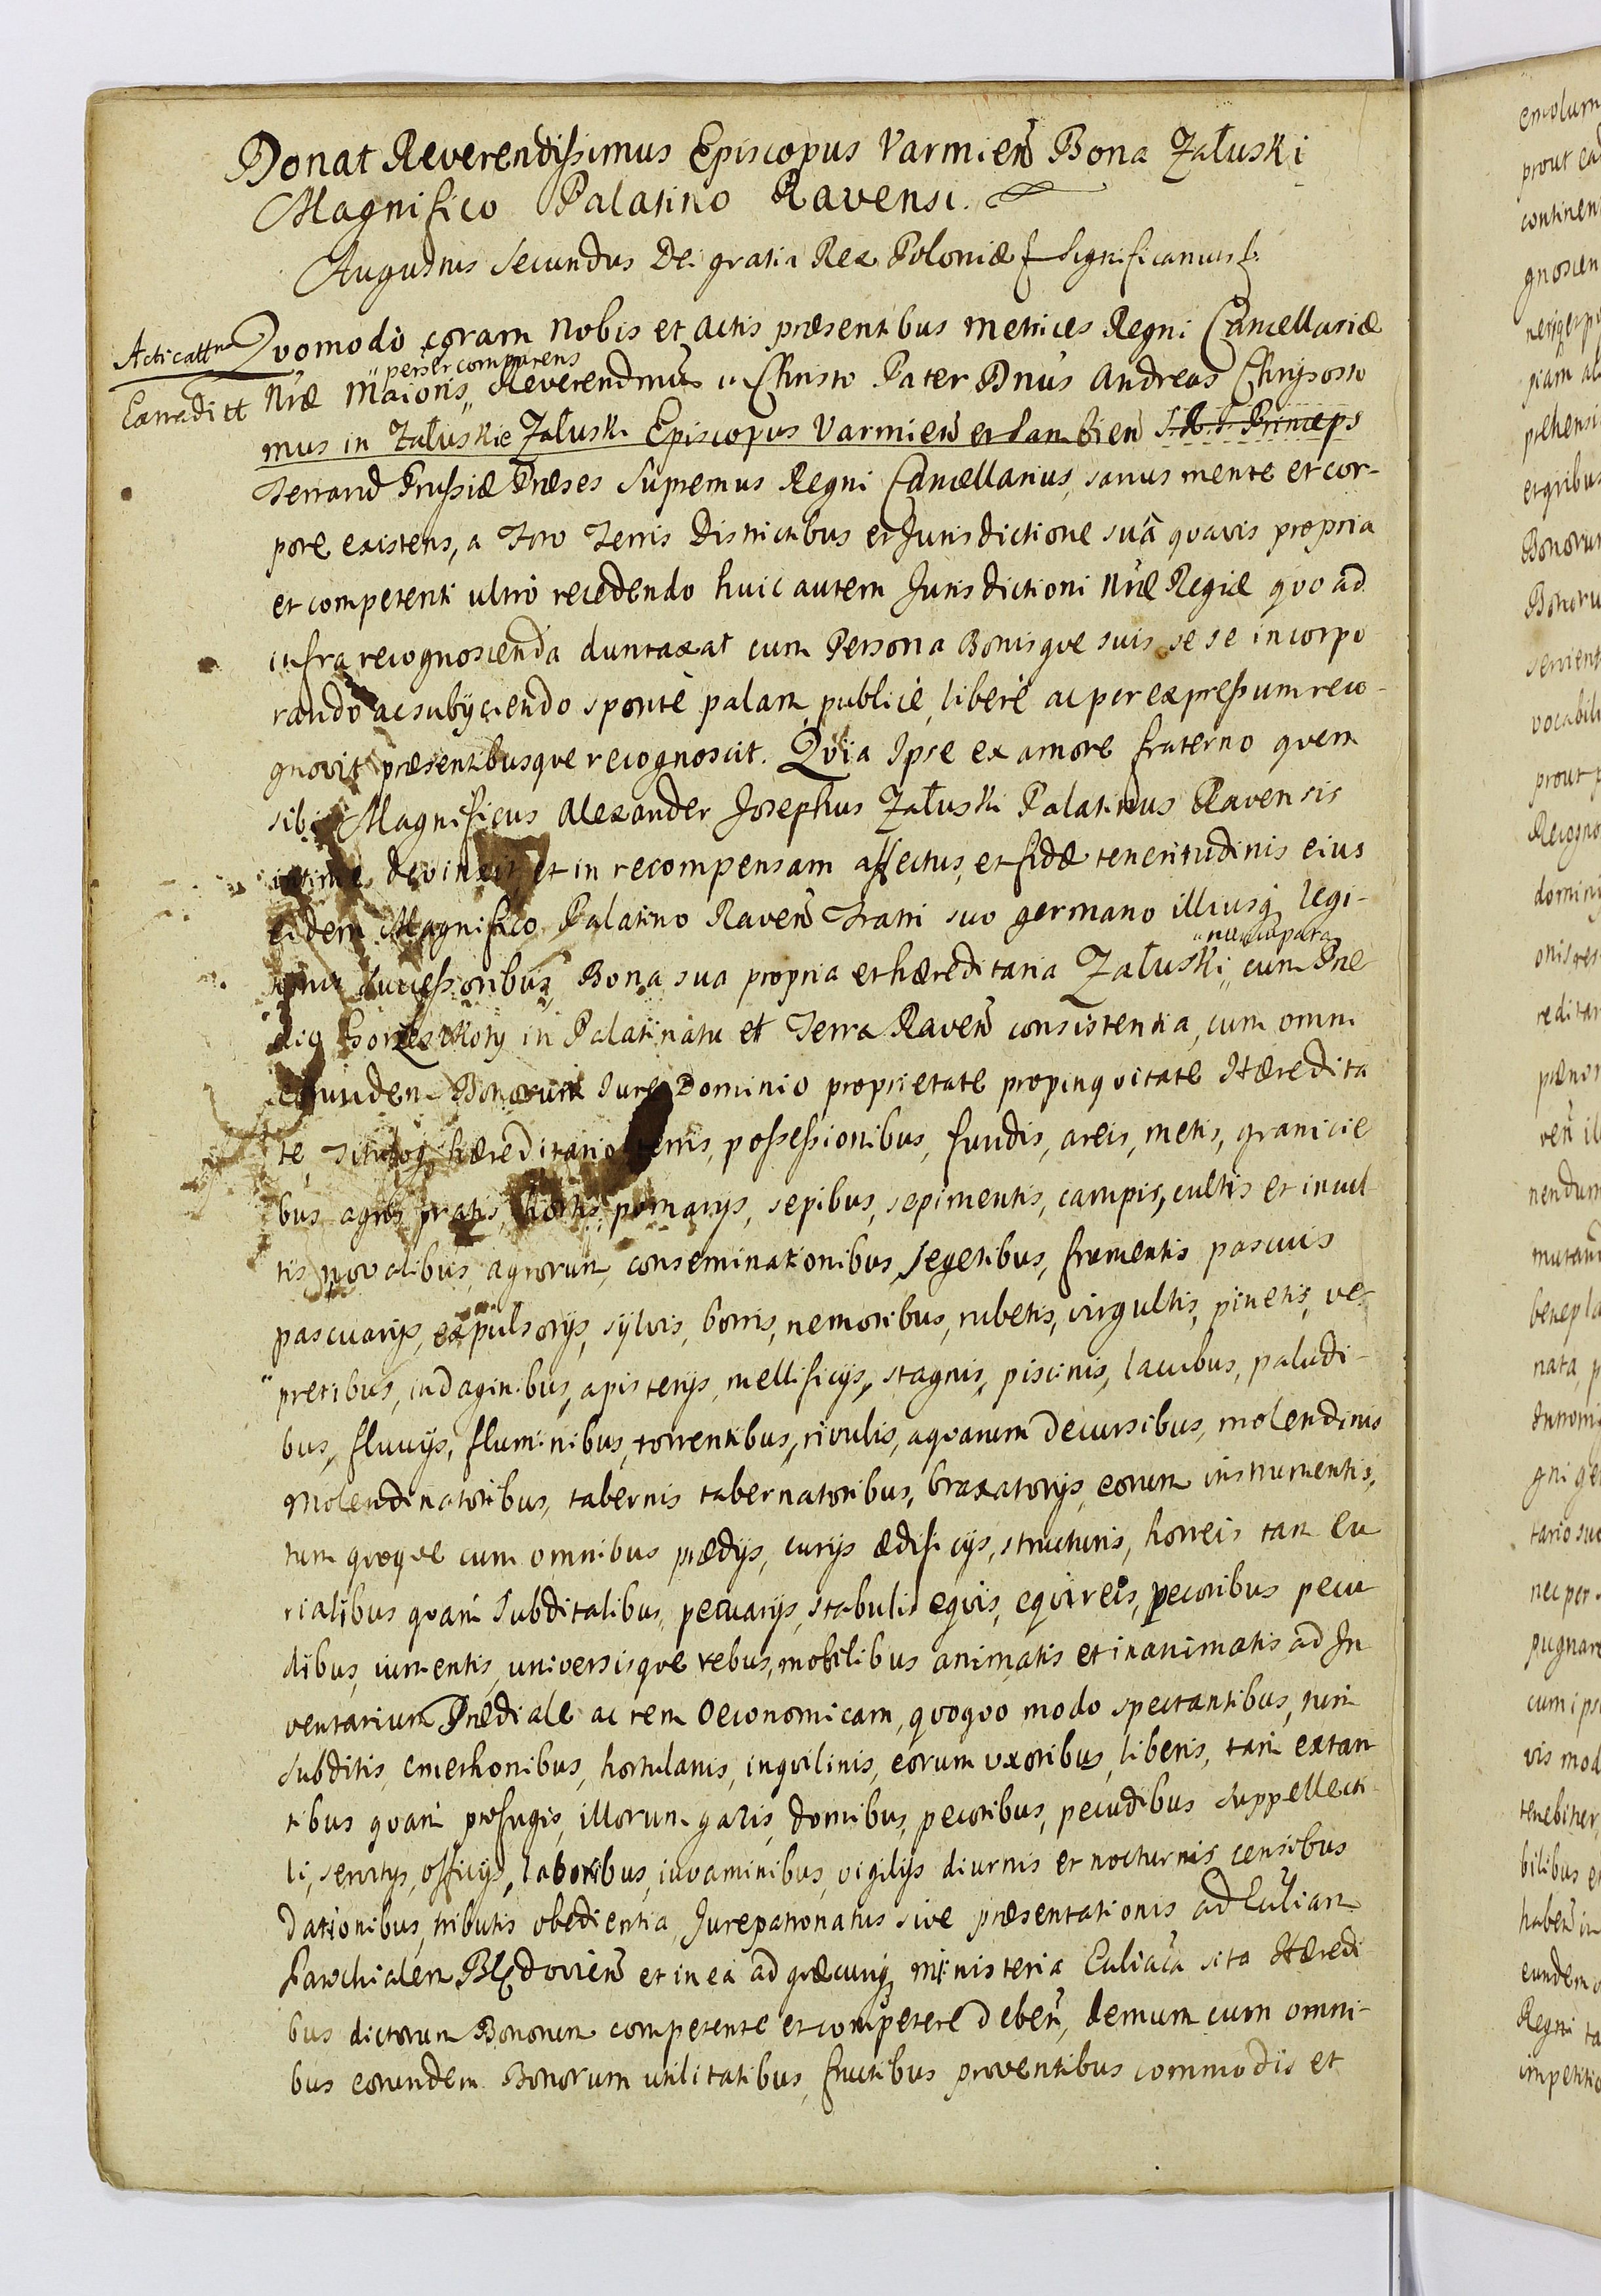 Donat Reverendissimus Episcopus Varmień Bona Załuski
Magnifico Palatino Ravensi.
Augustus Secundus Dei gratia Rex Poloniæ Significamus
Acticattur Qvomodo coram Nobis et actis præsentibus metrices Regni Cancellariæ
"perser comparens
Extradit Nræ Maioris" Reverendmus in Christo Pater Dnus Andreas Chrysosto
mus in Załuskie Załuski Episcopus Varmień et Sambień S. R. I. Princeps
Terrarũ Prussiæ Præses Supremus Regni Cancellarius, sanus mente et cor-
pore existens, a Foro Terris Districtibus et Jurisdictione suâ qvavis propria
et competenti ultro recedendo huic autem Jurisdictioni Nræ Regiæ qvo ad
infra recognoscenda duntaxat cum Persona Bonisqve suis se se incorpo
rando ac subÿciendo spontè palam, publicè, liberè ac per expressum reco-
gnovit præsentibusqve recognoscit. Qvia Ipse ex amore fraterno qvem
sibi Magnificus Alexander Josephus Załuski Palatinus Ravensis
intime devinxit, et in recompensam affectus, et fidæ teneritudinis eius
eidem Magnifico Palatino Raveń Fratri suo germano illiusq legi-
"nuncupata
timis Successoribus, Bona sua propria et hæreditaria Załuski" cum Præ
dio in Palatinatu et Terra Raveń consistentia, cum omni
eorundem Bonorum Iure Dominio proprietate propinqvitate Hæredita
te, Tituloq hæreditario terris, possessionibus, fundis, areis, metis, granicie
bus agris pratis, hortis, pomarys, sepibus, sepimentis, campis, cultis et incul
tis novalibus, agrorum, conseminationibus, segetibus, frumentis pascuis
pascuarÿs, expulsorÿs, sylvis, borris, nemoribus, rubetis, virgultis, pinetis, ve-
"pretibus, indaginibus, apisterÿs, mellificÿs, stagnis, piscinis, lacubus, paludi-
bus, fluvÿs, fluminibus, torrentibus, rivulis, aqvarum decursibus, molendinis
Molendinatoribus, tabernis tabernatoribus, braxatorÿs, eorum instrumentis,
tum qvoqve cum omnibus prædÿs, curÿs ædificÿs, structuris, horreis tam cu
rialibus qvam Subditalibus, pecuarÿs, stabulis eqvis, eqvireis, pecoribus pecu
dibus, iumentis, universisqve rebus, mobilibus animatis et inanimatis ad In
ventarium Prædiale ac rem Oeconomicam, qvoqvo modo spectantibus, tum
Subditis, cmethonibus, hortulanis, inqvilinis, eorum uxoribus, liberis, tam extan
tibus qvam profugis, illorum gazis, domibus, pecoribus, pecudibus suppellecti-
li, servitÿs, officÿs, laboribus, iuvaminibus, vigilÿs diurnis et nocturnis, censibus
Dationibus, tributis obedientia, Jurepatronatus sive præsentationis ad Ecclãm
Parochialem Błędovień et in ea ad qvæcunq ministeria Ecclãca sita Hæredi
bus dictorum Bonorum competente et competere debeñ, demum cum omni-
bus eorundem Bonorum utilitatibus, fructibus proventibus commodis et